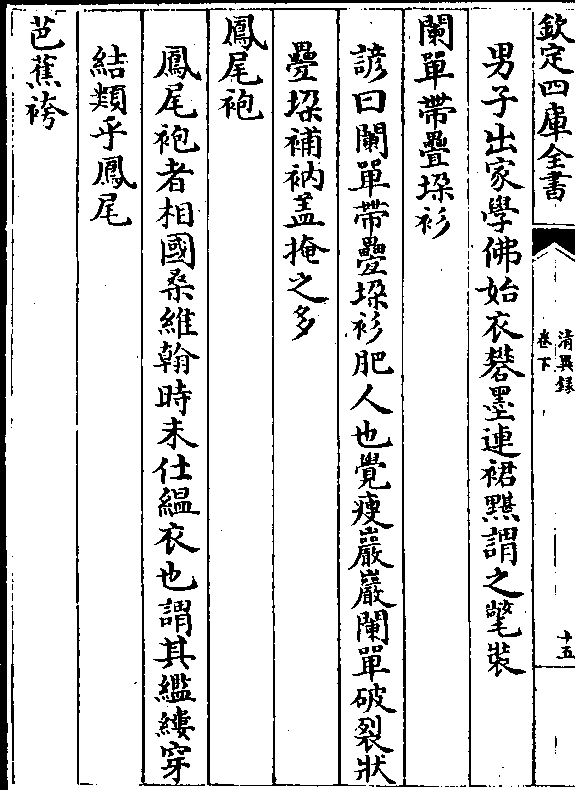 欽定四庫全書
清異録
卷下
十五
男子出家學佛始衣礬墨連裙黮謂之氅裝
闌單帶疊垜衫
諺曰闌單帶疊垜衫肥人也覺瘦巖巖闌單破裂狀
疊垜補衲盖掩之多
鳳尾袍
鳳尾袍者相國桑維翰時未仕緼衣也謂其繿縷穿
結類乎鳳尾
芭蕉袴